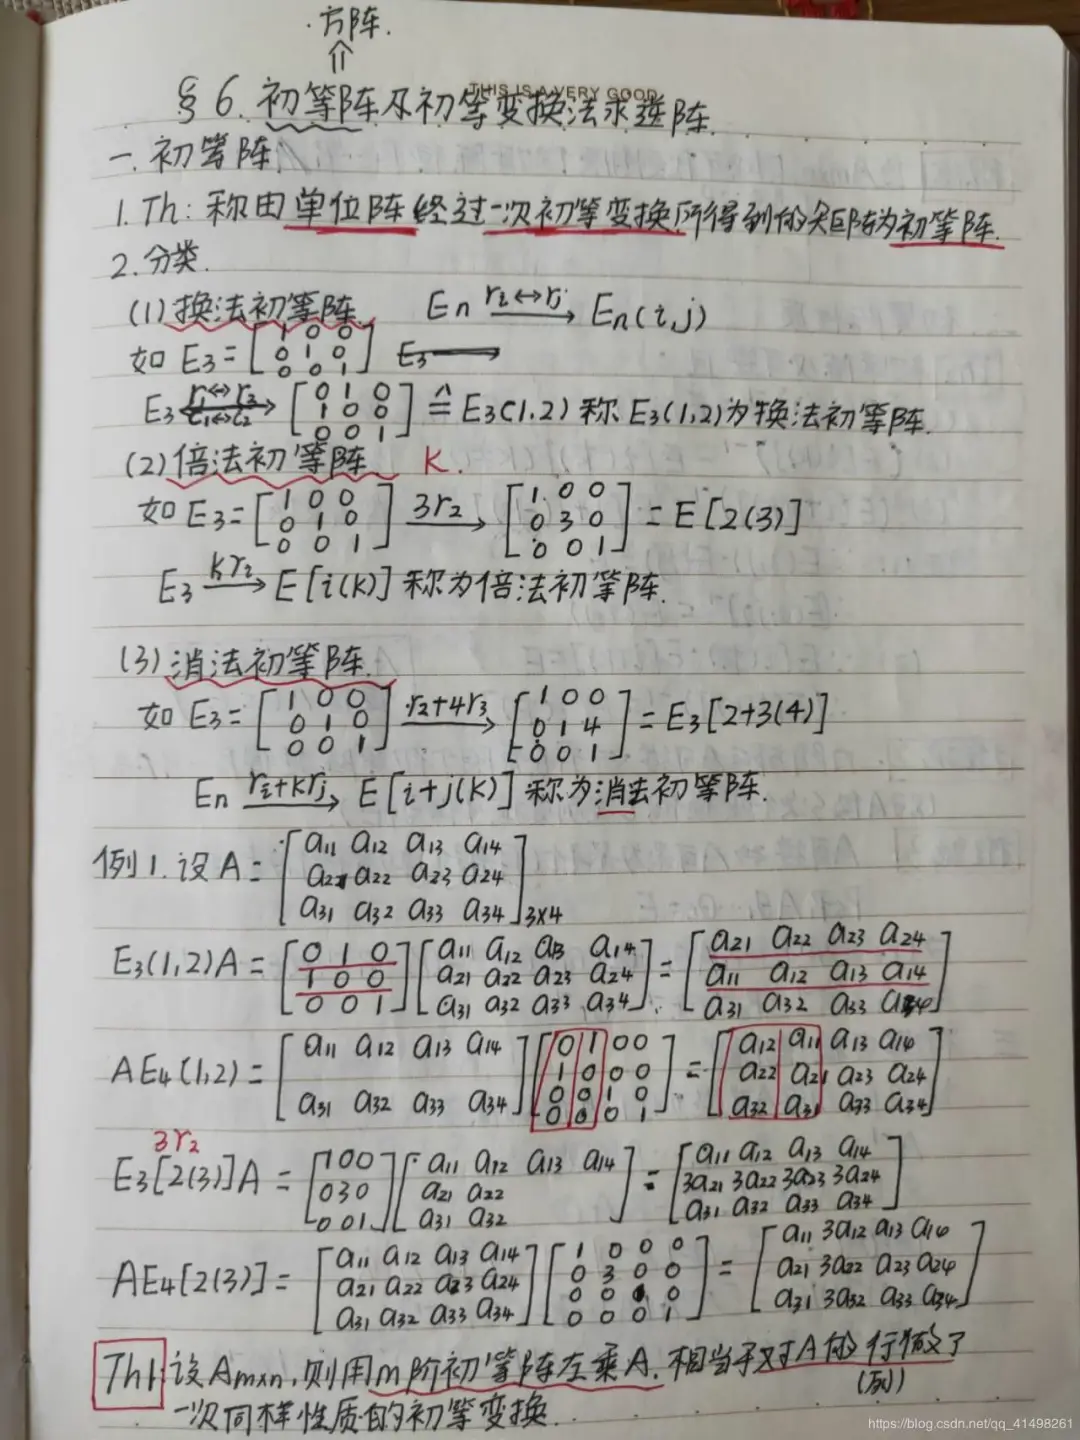 ·方阵.
⇑
THIS IS A VERY GOOD
§6. 初等阵及初等变换法求逆阵.
一. 初等阵.
1. Th: 称由单位阵经过一次初等变换所得到的矩阵为初等阵.
2. 分类.
(1) 换法初等阵 En ri↔rj → En(i,j)
如 E3 = [1 0 0; 0 1 0; 0 0 1] E3 →
E3 r1↔r2 c1↔c2 → [0 1 0; 1 0 0; 0 0 1] ≙ E3(1,2) 称 E3(1,2)为换法初等阵.
(2) 倍法初等阵 K.
如 E3 = [1 0 0; 0 1 0; 0 0 1] 3r2 → [1 0 0; 0 3 0; 0 0 1] = E[2(3)]
E3 kri → E[i(k)] 称为倍法初等阵.
(3) 消法初等阵.
如 E3 = [1 0 0; 0 1 0; 0 0 1] r2+4r3 → [1 0 0; 0 1 4; 0 0 1] = E3[2+3(4)]
En ri+krj → E[i+j(k)] 称为消法初等阵.
例1. 设 A = [a11 a12 a13 a14; a21 a22 a23 a24; a31 a32 a33 a34]3×4
E3(1,2)A = [0 1 0; 1 0 0; 0 0 1][a11 a12 a13 a14; a21 a22 a23 a24; a31 a32 a33 a34] = [a21 a22 a23 a24; a11 a12 a13 a14; a31 a32 a33 a34]
AE4(1,2) = [a11 a12 a13 a14; a31 a32 a33 a34][0 1 0 0; 1 0 0 0; 0 0 1 0; 0 0 0 1] = [a12 a11 a13 a14; a22 a21 a23 a24; a32 a31 a33 a34]
3r2
E3[2(3)]A = [1 0 0; 0 3 0; 0 0 1][a11 a12 a13 a14; a21 a22; a31 a32] = [a11 a12 a13 a14; 3a21 3a22 3a23 3a24; a31 a32 a33 a34]
AE4[2(3)] = [a11 a12 a13 a14; a21 a22 a23 a24; a31 a32 a33 a34][1 0 0 0; 0 3 0 0; 0 0 1 0; 0 0 0 1] = [a11 3a12 a13 a14; a21 3a22 a23 a24; a31 3a32 a33 a34]
Th1: 设 Am×n, 则用m阶初等阵左乘A. 相当于对A的行做了
(列)
一次同样性质的初等变换.
https://blog.csdn.net/qq_41498261